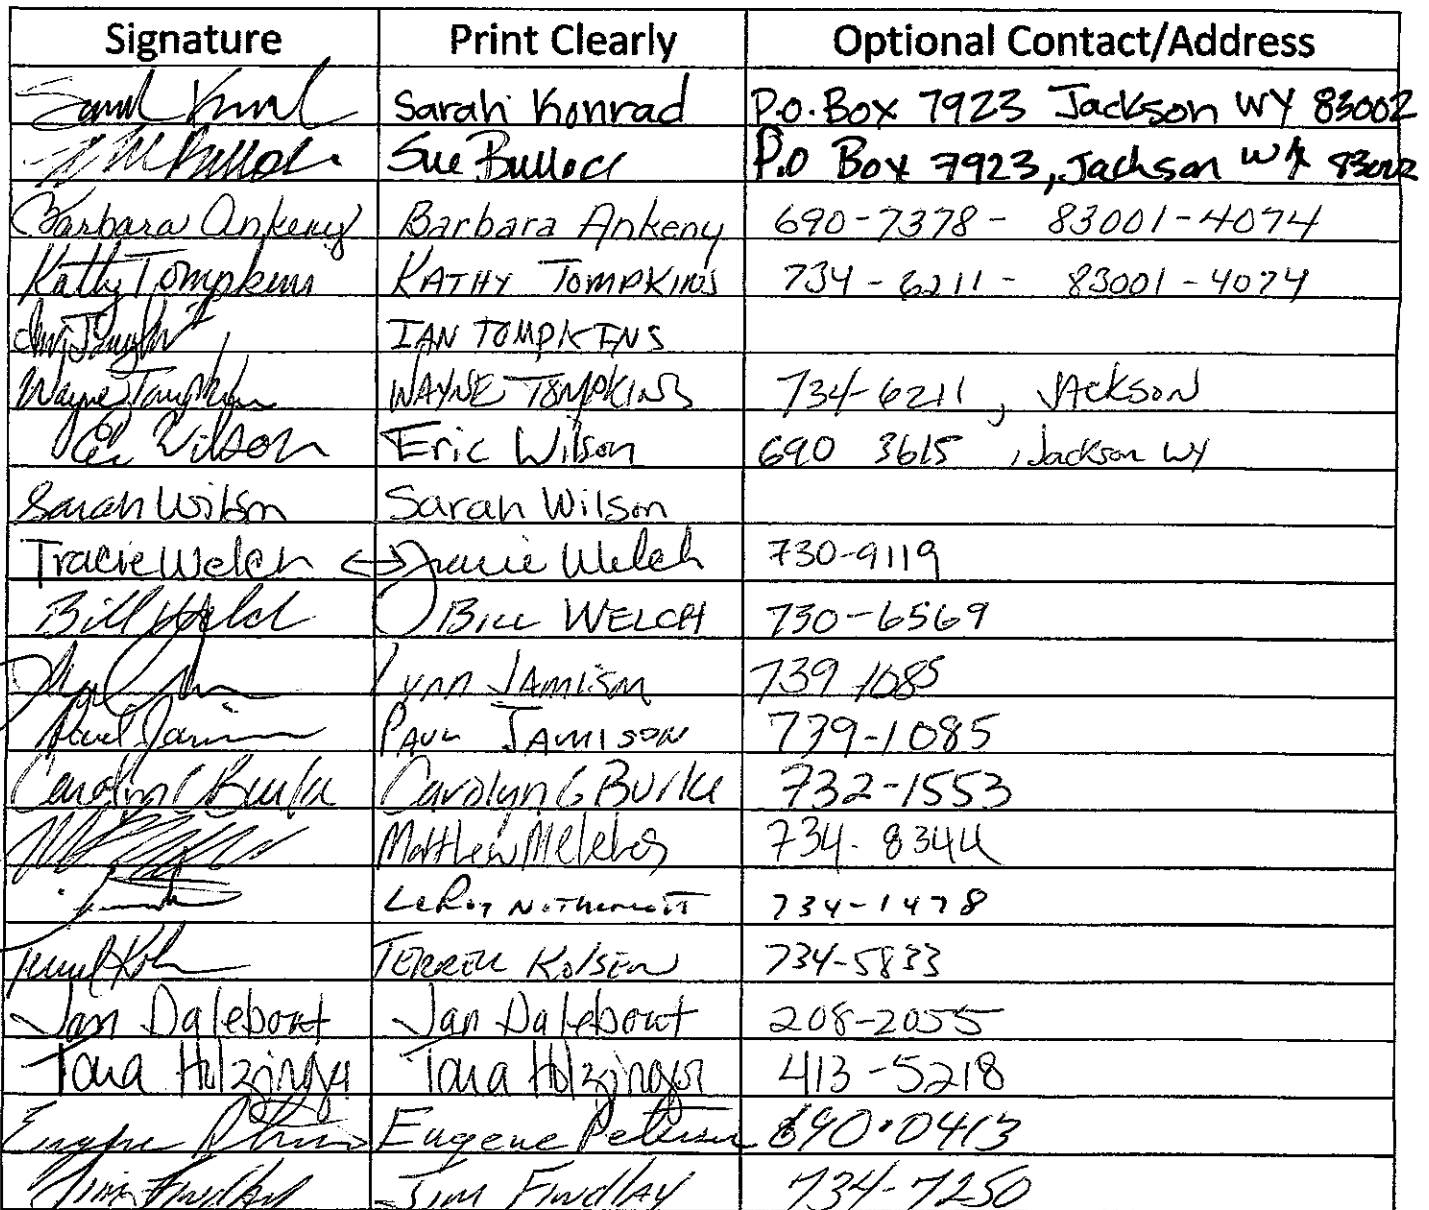 Signature Print Clearly Optional Contact/Address
Sarah Konrad P.O. Box 7923 Jackson WY 83002
Sue Bullock P.O Box 7923, Jackson WY 83002
Barbara Ankeny Barbara Ankeny 690-7378- 83001-4074
Kathy Tompkins KATHY TOMPKINS 734-6211- 83001-4074
IAN TOMPKINS
Wayne Tompkins WAYNE TOMPKINS 734-6211, JACKSON
Wilson Eric Wilson 690 3615, Jackson WY
Sarah Wilson Sarah Wilson
Tracie Welch Tracie Welch 730-9119
Bill Welch BILL WELCH 730-6569
Lynn JAMISON 739 1085
Paul Jamison PAUL JAMISON 739-1085
Carolyn C Burke Carolyn C Burke 732-1553
Matthew 734-8344
LeRoy 734-1478
TERREL KOLSEN 734-5833
Jan Dalebout Jan Dalebout 208-2055
Tara Holzinger Tara Holzinger 413-5218
Eugene Peterson Eugene Peterson 690-0413
Jim Findlay Jim FINDLAY 734-7250